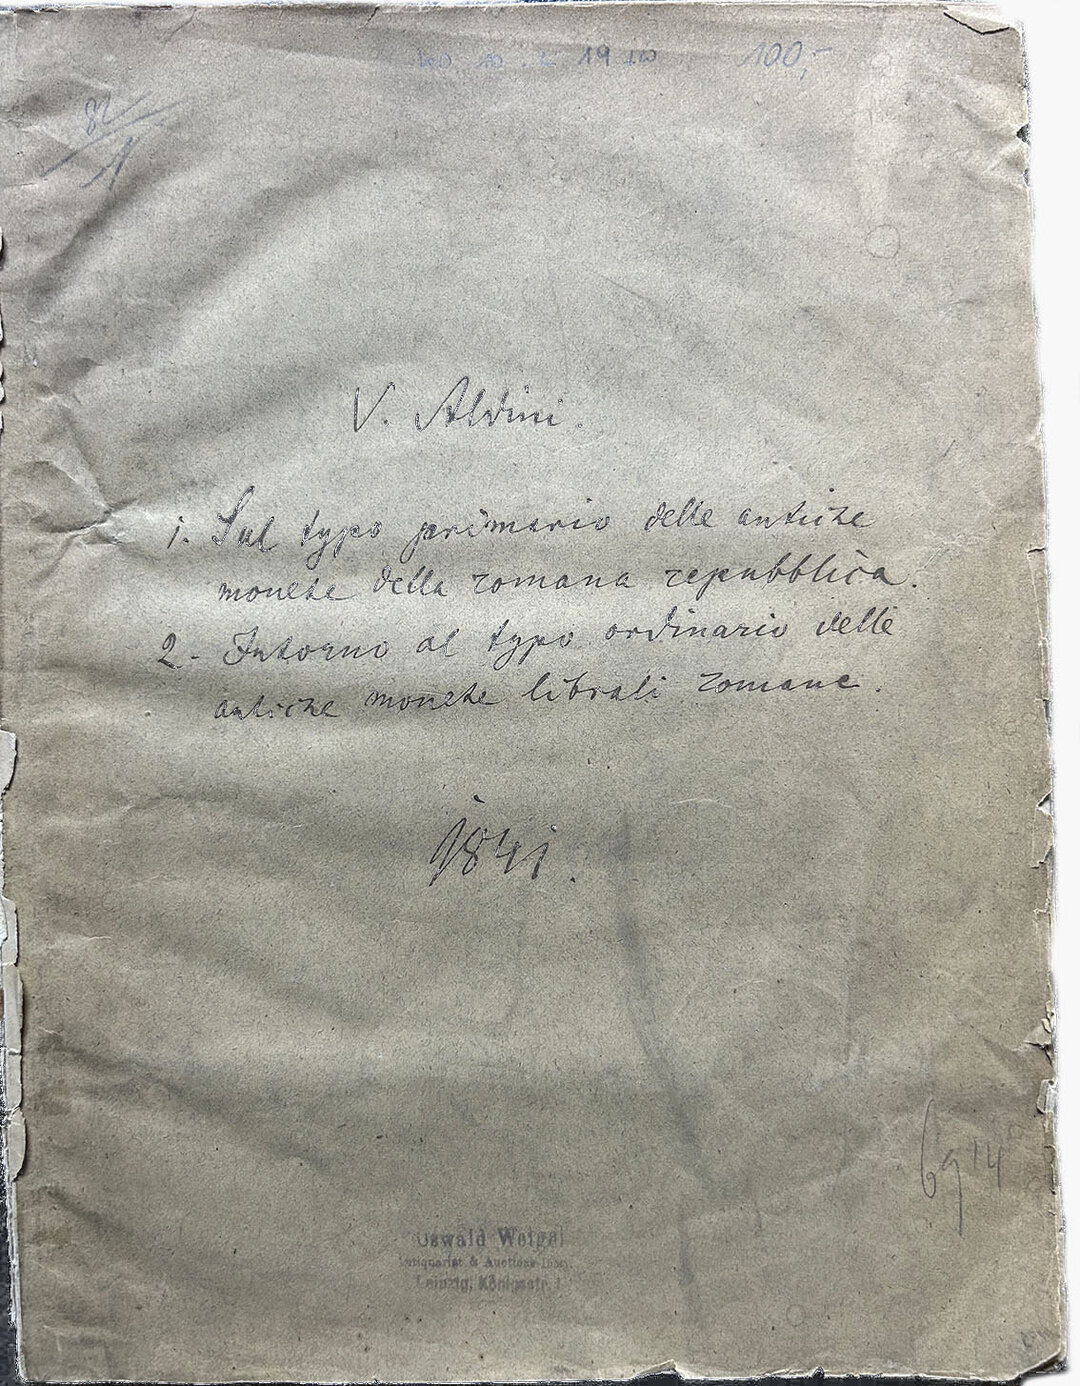 100,-
82
1
V. Aldini.
1. Sul typo primario delle antiche
monete della romana repubblica.
2. Intorno al typo ordinario delle
antiche monete librali romane.
1841.
6g 14
Oswald Weigel
Antiquariat & Auctions-Inst.
Leipzig, Königsstr. 1